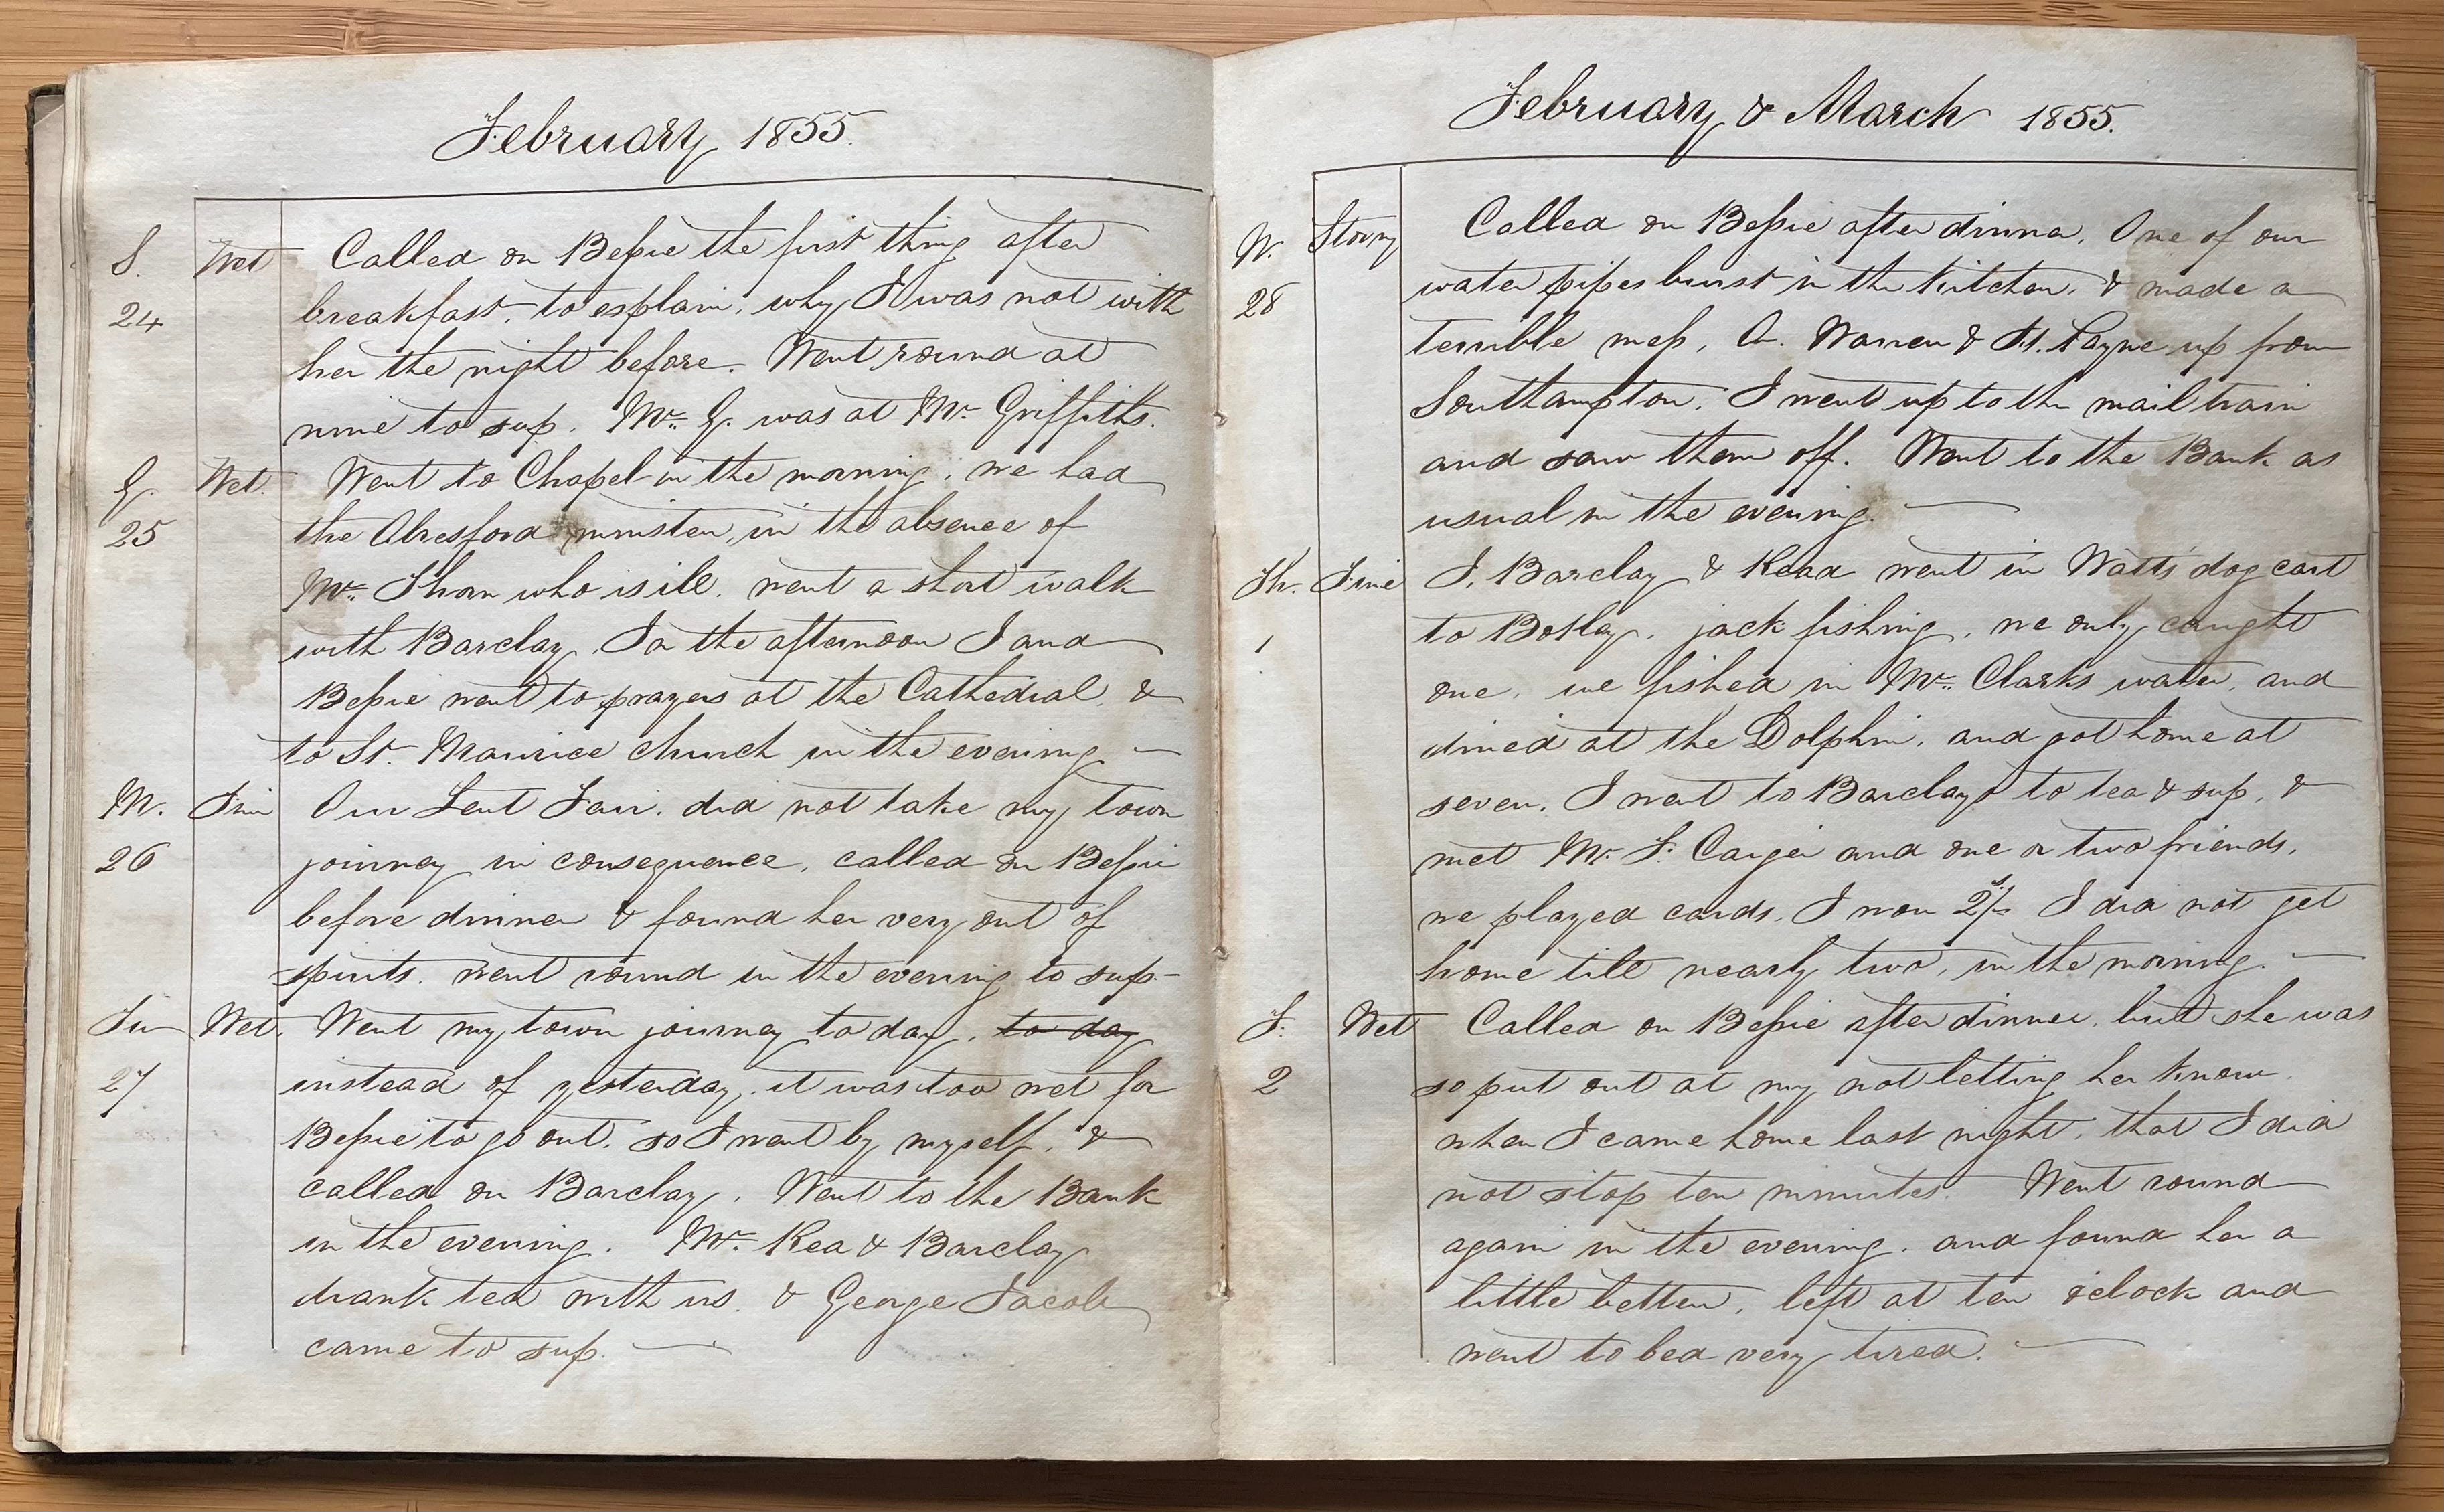 February 1855.
S. Wet Called on Bessie the first thing after
24 breakfast, to explain, why I was not with
her the night before. Went round at
nine to sup. Mr. G. was at Mr Griffiths.
G. Wet. Went to Chapel in the morning, we had
25 the Alresford minister, in the absence of
Mr. Thorn who is ill. went a short walk
with Barclay. In the afternoon I and
Bessie went to prayers at the Cathedral, &
to St. Maurice church in the evening —
M. Fine Our Lent Fair. did not take my town
26 journey in consequence, called on Bessie
before dinner & found her very out of
spirits. went round in the evening to sup —
Tu Wet. Went my town journey to day, to day
27 instead of yesterday, it was too wet for
Bessie to go out. so I went by myself, &
called on Barclay. Went to the Bank
in the evening. Mr. Rea & Barclay
drank tea with us. & George Jacob
came to sup. —
February & March 1855.
W. Stormy Called on Bessie after dinner. One of our
28 water pipes burst in the kitchen, & made a
terrible mess, A. Warren & H. Payne up from
Southampton. I went up to the mail train
and saw them off. Went to the Bank as
usual in the evening. —
Th. Fine I, Barclay & Read went in Watts dog cart
1 to Botley, jack fishing, we only caught
one, we fished in Mr. Clarks water, and
dined at the Dolphin, and got home at
seven. I went to Barclays to tea & sup, &
met Mr. F. and one or two friends,
we played cards. I won 2/- I did not get
home till nearly two, in the morning. —
F. Wet Called on Bessie after dinner, but she was
2 so put out at my not letting her know
when I came home last night, that I did
not stop ten minutes. Went round
again in the evening. and found her a
little better, left at ten o'clock and
went to bed very tired. —